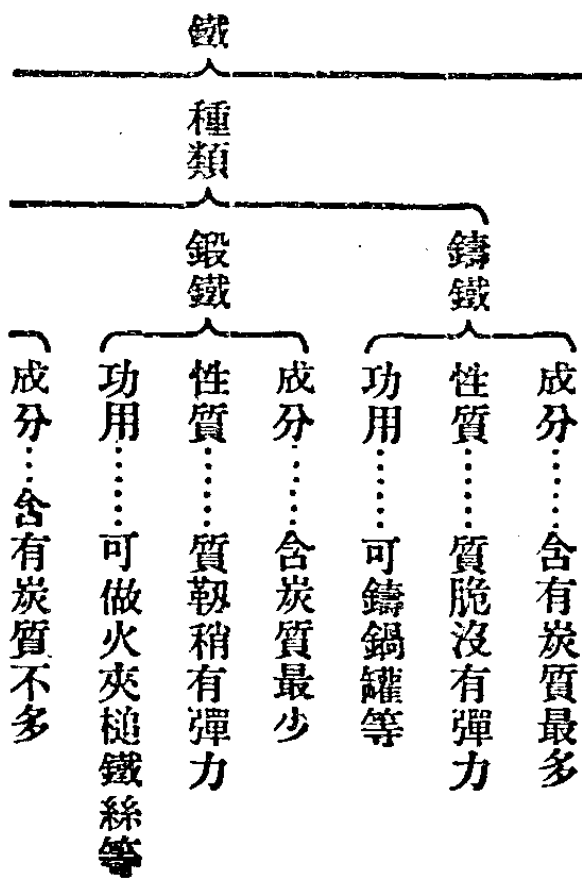 鐵
種類
鑄鐵
成分……含有炭質最多
性質……質脆沒有彈力
功用……可鑄鍋罐等
鍛鐵
成分……含炭質最少
性質……質韌稍有彈力
功用……可做火夾槌鐵絲等
成分……含有炭質不多